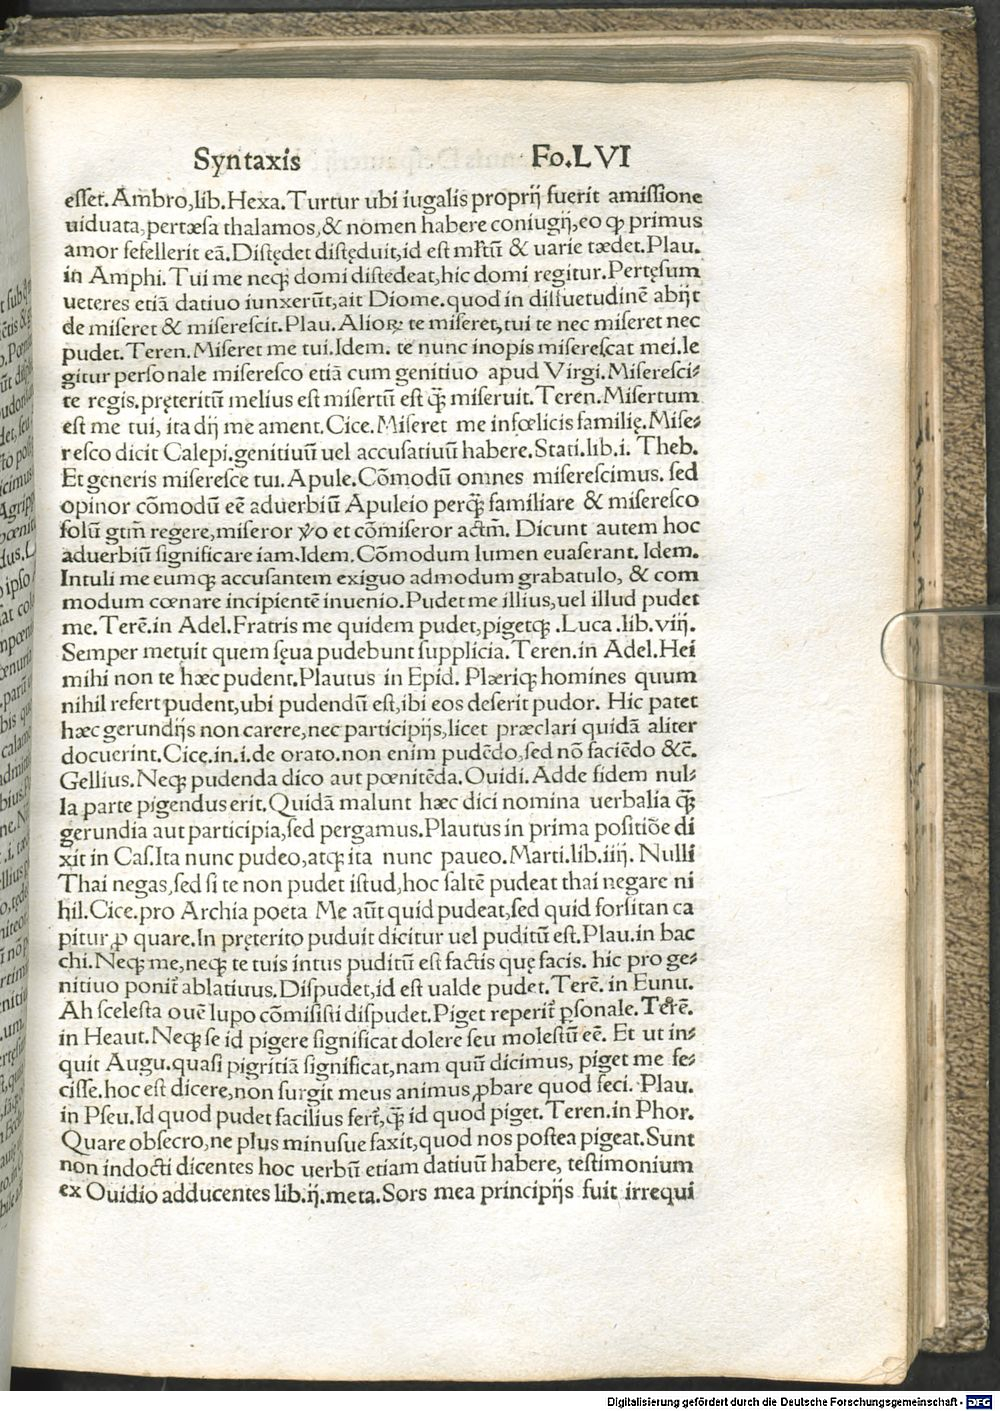 Syntaxis Fo.LVI
esset. Ambro, lib. Hexa. Turtur ubi iugalis proprij fuerit amissione
uiduata, pertæsa thalamos, & nomen habere coniugij, eo ꝙ primus
amor fefellerit eā. Distędet distęduit, id est ml̓tū & uarie tædet. Plau.
in Amphi. Tui me neqꝫ domi distedeat, hic domi regitur. Pertęsum
ueteres etiā datiuo iunxerūt, ait Diome. quod in dissuetudinē abijt
de miseret & miserescit. Plau. Alioꝝ te miseret, tui te nec miseret nec
pudet. Teren. Miseret me tui. Idem. te nunc inopis miserescat mei. le
gitur personale miseresco etiā cum genitiuo apud Virgi. Miseresci⸗
te regis. pręteritū melius est misertū est q̄ꝫ miseruit. Teren. Misertum
est me tui, ita dij me ament. Cice. Miseret me infœlicis familię. Mise⸗
resco dicit Calepi. genitiuū uel accusatiuū habere. Stati. lib. i. Theb.
Et generis miseresce tui. Apule. Cōmodū omnes miserescimus. sed
opinor cōmodū eē aduerbiū Apuleio perq̄ꝫ familiare & miseresco
solū gtm̄ regere, miseror ꝟo et cōmiseror actm̄. Dicunt autem hoc
aduerbiū significare iam. Idem. Cōmodum lumen euaserant. Idem.
Intuli me eumqꝫ accusantem exiguo admodum grabatulo, & com
modum cœnare incipientē inuenio. Pudet me illius, uel illud pudet
me. Terē. in Adel. Fratris me quidem pudet, pigetqꝫ. Luca. lib. viij.
Semper metuit quem sęua pudebunt supplicia. Teren. in Adel. Hei
mihi non te hæc pudent. Plautus in Epid. Plæriqꝫ homines quum
nihil refert pudent, ubi pudendū est, ibi eos deserit pudor. Hic patet
hæc gerundijs non carere, nec participijs, licet præclari quidā aliter
docuerint. Cice. in. i. de orato. non enim pudēdo, sed nō faciēdo &c̄.
Gellius. Neqꝫ pudenda dico aut pœnitēda. Ouidi. Adde fidem nul⸗
la parte pigendus erit. Quidā malunt hæc dici nomina uerbalia q̄ꝫ
gerundia aut participia, sed pergamus. Plautus in prima positiōe di
xit in Cas. Ita nunc pudeo, atqꝫ ita nunc paueo. Marti. lib. iiij. Nulli
Thai negas, sed si te non pudet istud, hoc saltē pudeat thai negare ni
hil. Cice. pro Archia poeta Me aūt quid pudeat, sed quid forsitan ca
pitur ꝓ quare. In pręterito puduit dicitur uel puditū est. Plau. in bac
chi. Neqꝫ me, neqꝫ te tuis intus puditū est factis quę facis. hic pro ge⸗
nitiuo ponit̄ ablatiuus. Dispudet, id est ualde pudet. Terē. in Eunu.
Ah scelesta ouē lupo cōmisisti dispudet. Piget reperit̄ ꝑsonale. Terē.
in Heaut. Neqꝫ se id pigere significat dolere seu molestū eē. Et ut in⸗
quit Augu. quasi pigritiā significat, nam quū dicimus, piget me fe⸗
cisse. hoc est dicere, non surgit meus animus ꝓbare quod feci. Plau.
in Pseu. Id quod pudet facilius fert̄, q̄ꝫ id quod piget. Teren. in Phor.
Quare obsecro, ne plus minusue faxit, quod nos postea pigeat. Sunt
non indocti dicentes hoc uerbū etiam datiuū habere, testimonium
ex Ouidio adducentes lib. ij. meta. Sors mea principijs fuit irrequi
Digitalisierung gefördert durch die Deutsche Forschungsgemeinschaft - DFG